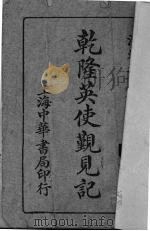 乾隆英使覲見記
海中華書局印行
www.mtoou.info